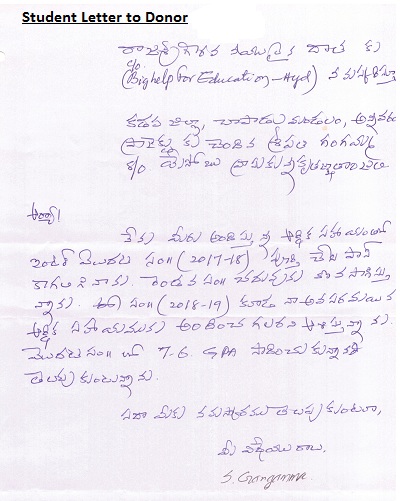 Student Letter to Donor
రాజశ్రీ గౌరవ దాత కు
c/o.
(Bighelp for Education-Hyd) నమస్కరిస్తూ
కడప జిల్లా, చాపాడు మండలం,
కు చెందిన శ్రీపతి గంగమ్మ
ఆర్యా!
నేను మీరు అందిస్తున్న ఆర్థిక సహాయంతో
ఇంటర్ మొదటి సం॥ (2017-18) పూర్తి చేసి పాస్
కాగలిగినాను. రెండవ సం॥ చదువును కొనసాగిస్తు
న్నాను. ఈ సం॥ (2018-19) కూడా నా అవసరమయిన
ఆర్థిక సహాయమును అందించ గలరని ఆశిస్తున్నాను.
మొదటి సం॥ లో 7-6. GPA సాధించుకున్నానని
తెలుపుకుంటున్నాను.
సదా మీకు నమస్కారము తెలుపుకుంటూ,
మీ విధేయురాలు,
S. Gangamma